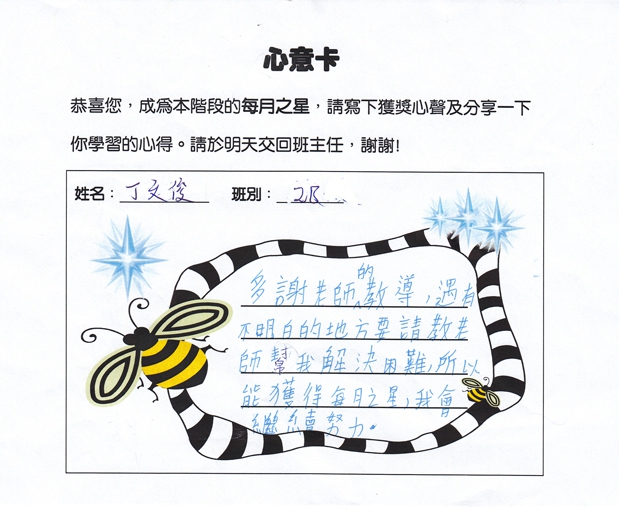 心意卡
恭喜您，成為本階段的每月之星，請寫下獲獎心聲及分享一下
你學習的心得。請於明天交回班主任，謝謝!
姓名：丁文俊 班別：
多謝老師的教導，遇有
不明白的地方要請教老
師幫我解決困難，所以
能獲得每月之星，我會
繼續努力。